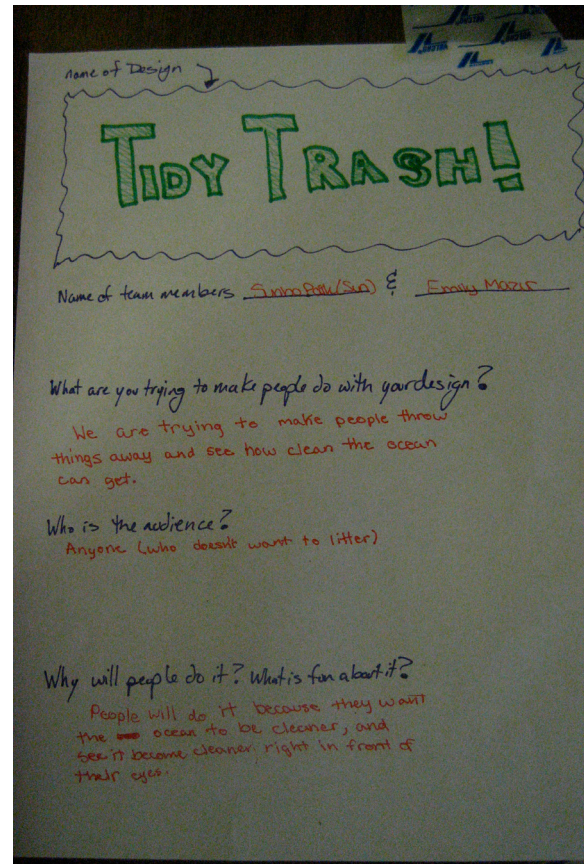 name of Design
TIDY TRASH!
Name of team members Sunho Park (Sun) & Emily Mazur
What are you trying to make people do with your design?
We are trying to make people throw
things away and see how clean the ocean
can get.
Who is the audience?
Anyone (who doesn't want to litter)
Why will people do it? What is fun about it?
People will do it because they want
the ocean to be cleaner, and
see it become cleaner right in front of
their eyes.